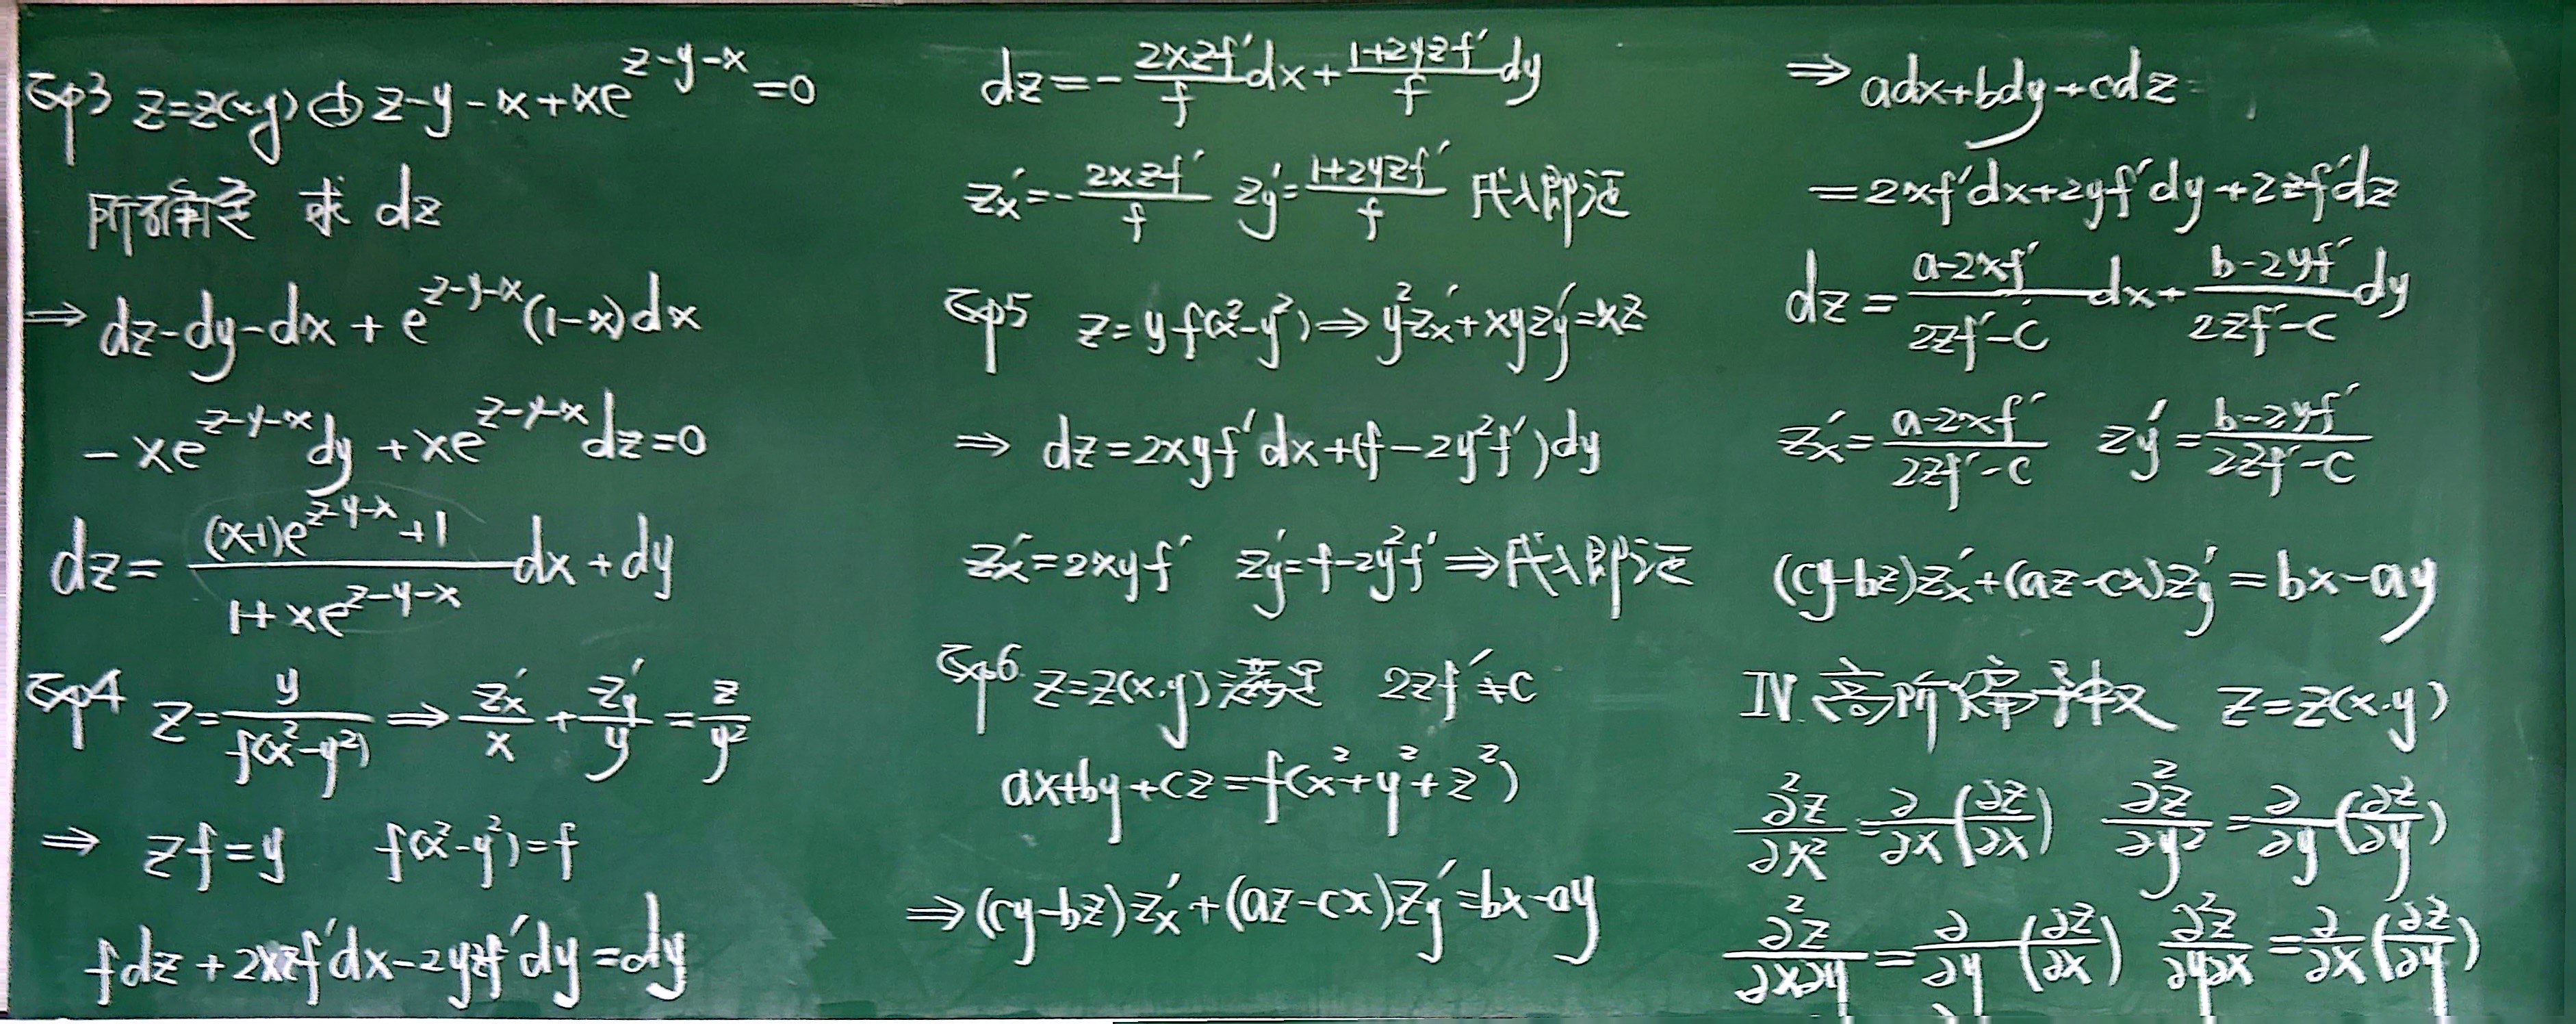 Exp3 z=z(x.y) 由 z-y-x+xe^{z-y-x}=0
所确定 求 dz
⇒ dz-dy-dx+e^{z-y-x}(1-x)dx
-xe^{z-y-x}dy+xe^{z-y-x}dz=0
dz=\frac{(x-1)e^{z-y-x}+1}{1+xe^{z-y-x}}dx+dy
Exp4 z=\frac{y}{f(x²-y²)} ⇒ \frac{z'_x}{x}+\frac{z'_y}{y}=\frac{z}{y²}
⇒ zf=y f(x²-y²)=f
fdz+2xzf'dx-2yzf'dy=dy
dz=-\frac{2xzf'}{f}dx+\frac{1+2yzf'}{f}dy
z'_x=-\frac{2xzf'}{f} z'_y=\frac{1+2yzf'}{f} 代入即证
Exp5 z=yf(x²-y²)⇒y²z'_x+xyz'_y=xz
⇒ dz=2xyf'dx+(f-2y²f')dy
z'_x=2xyf' z'_y=f-2y²f' ⇒代入即证
Exp6. z=z(x.y)满足 2zf'≠c
ax+by+cz=f(x²+y²+z²)
⇒(cy-bz)z'_x+(az-cx)z'_y=bx-ay
⇒adx+bdy+cdz
=2xf'dx+2yf'dy+2zf'dz
dz=\frac{a-2xf'}{2zf'-c}dx+\frac{b-2yf'}{2zf'-c}dy
z'_x=\frac{a-2xf'}{2zf'-c} z'_y=\frac{b-2yf'}{2zf'-c}
(cy-bz)z'_x+(az-cx)z'_y=bx-ay
IV.高阶偏导数 z=z(x.y)
\frac{∂²z}{∂x²}=\frac{∂}{∂x}(\frac{∂z}{∂x}) \frac{∂²z}{∂y²}=\frac{∂}{∂y}(\frac{∂z}{∂y})
\frac{∂²z}{∂x∂y}=\frac{∂}{∂y}(\frac{∂z}{∂x}) \frac{∂²z}{∂y∂x}=\frac{∂}{∂x}(\frac{∂z}{∂y})